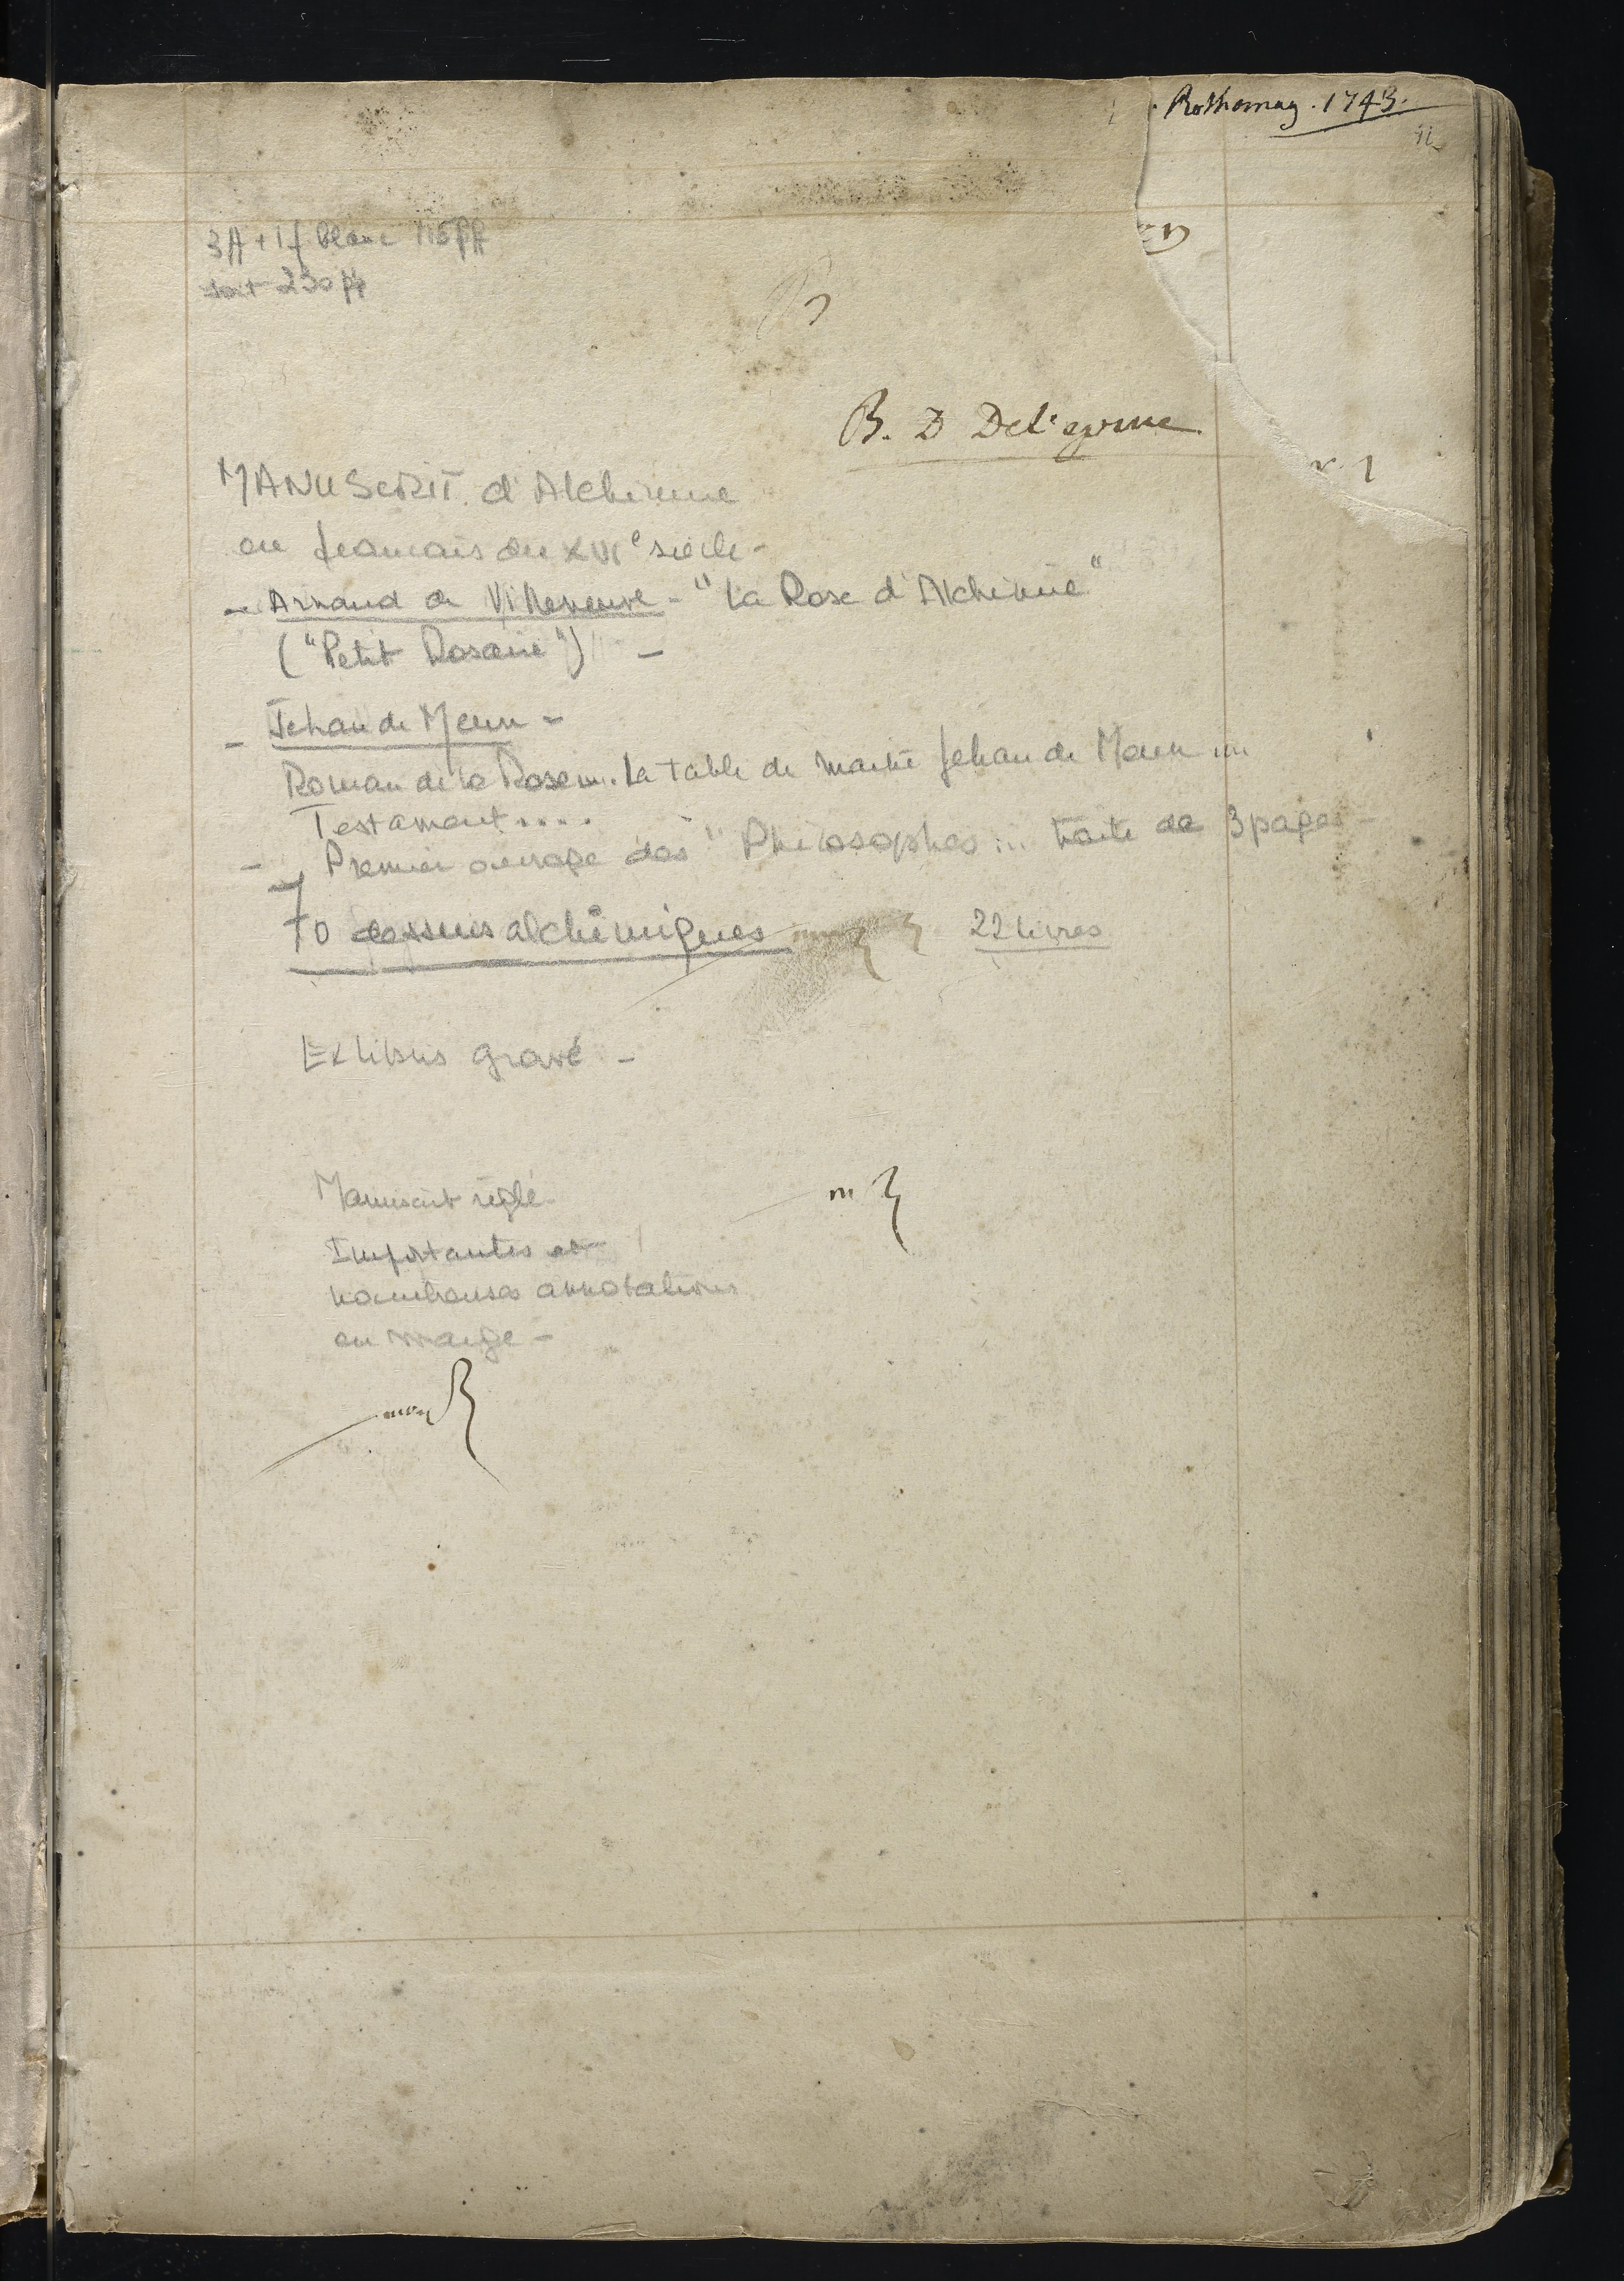 Rothomag. 1743.
3 ff + 1 f blanc 115 ff
soit 230 pp
B. D
MANUSCRIT d'Alchimie
en français du XVIe siècle -
- Arnaud de Villeneuve - "La Rose d'Alchimie"
("Petit Rosaire") -
- Jehan de Meun -
Roman de la Rose .... La table de maitre Jehan de Meun ....
Testament ....
- Premier ouvrage des "Philosophes ... traité de 3 pages -
70 dessins alchimiques 22 livres
Ex libris gravé -
Manuscrit réglé -
Importantes et
nombreuses annotations
en marge -